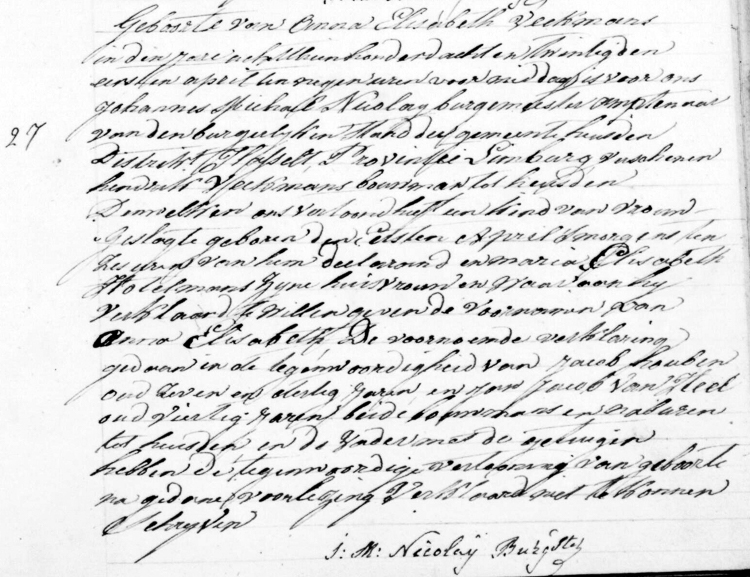 Geboorte van Anna Elisabeth Veckmans
in den jare achttienhonderd acht en twintig den
eersten april ten negen uren voor middag is voor ons
Johannes Michael Nicolaÿ burgemeester amptenaar
van den burgerlyken stand des gemeente heusden
District Hasselt, Provintie Limburg, verschenen
hendrik Veckmans bouwman tot heusden
Denwelken ons vertoond heeft een kind van vrouw
geslagte geboren den Eersten April smorgens ten
zes uren van hem declarand en maria Elisabeth
zyne huisvrouw en waar aan hy
verklaard te willen geven de voornamen van
Anna Elisabeth De voornoemde verklaring
gedaan in de tegenwoordigheid van Jacob houben
oud zeven en dertig jaren en jan Jacob van
oud viertig jaren beide bouwmans en naburen
tot heusden en de vader met de getuigen
hebben de tegenwoordige vertooning van geboorte
na gedane voorlezing verklaard niet te konnen
schryven
J: M: Nicolaÿ Burgstr
27